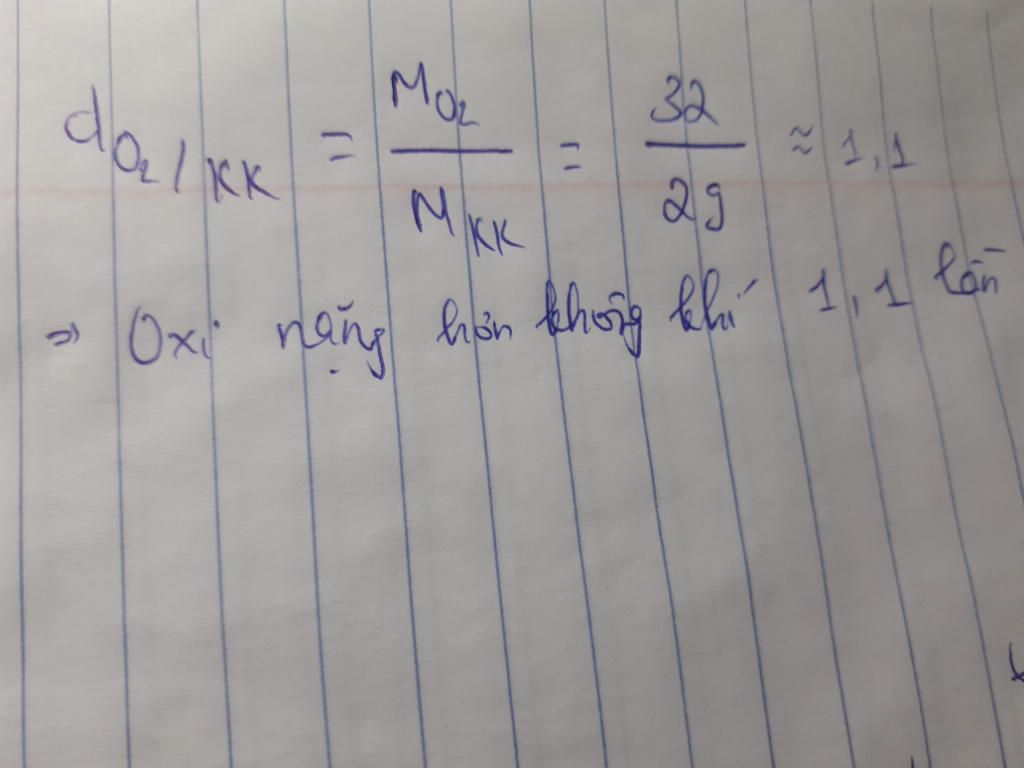 d O₂/KK = M O₂ / M KK = 32 / 29 ≈ 1,1
⇒ Oxi nặng hơn không khí 1,1 lần